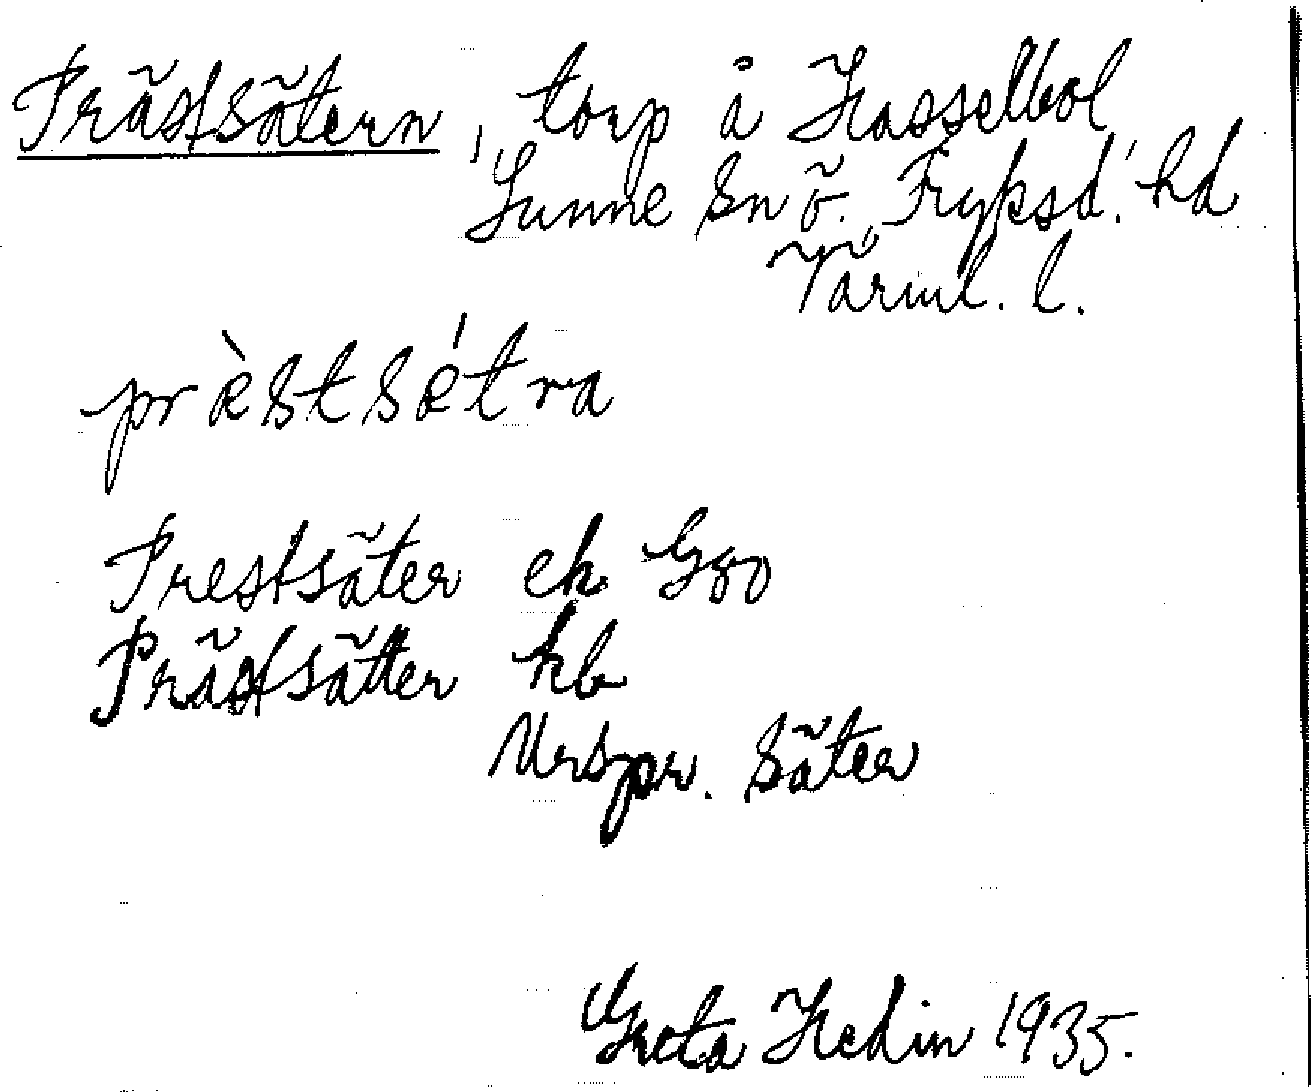 Prästsätern, torp å Hasselbol
Sunne sn ö. Fryksd. hd
Värml. l.
prèstsétra
Prestsäter ek Ggo
Prästsätter kb
Urspr. säter
Greta Hedin 1935.